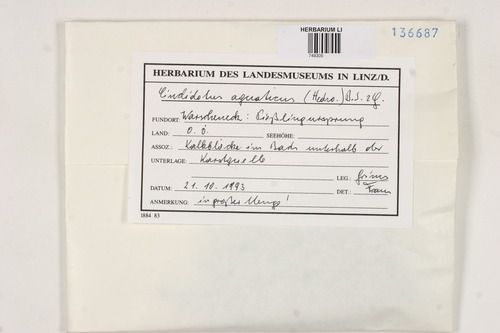 HERBARIUM LI
749305
136687
HERBARIUM DES LANDESMUSEUMS IN LINZ/D.
Cinclidotus aquaticus (Hedw.) B.S. & G.
FUNDORT: Warscheneck: Pießlingursprung
LAND: O.Ö. SEEHÖHE:
ASSOZ.: Kalkblöcke im Bach unterhalb der
UNTERLAGE: Karstquelle
LEG.: Grims
DATUM: 21.10.1993 DET.: Franz
ANMERKUNG: in großer Menge!
I884 83